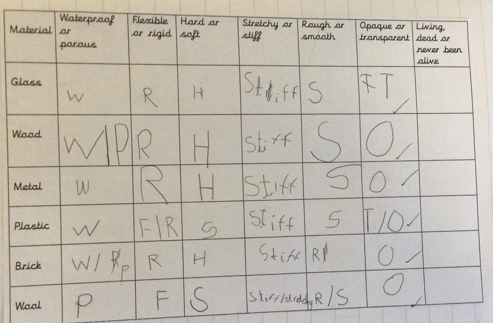 Material Waterproof or porous Flexible or rigid Hard or soft Stretchy or stiff Rough or smooth Opaque or transparent Living, dead or never been alive
Glass W R H Stiff S T
Wood W/P R H Stiff S O
Metal W R H Stiff S O
Plastic W F/R S Stiff S T/O
Brick W/P R H Stiff R O
Wool P F S Stiff/ R/S O